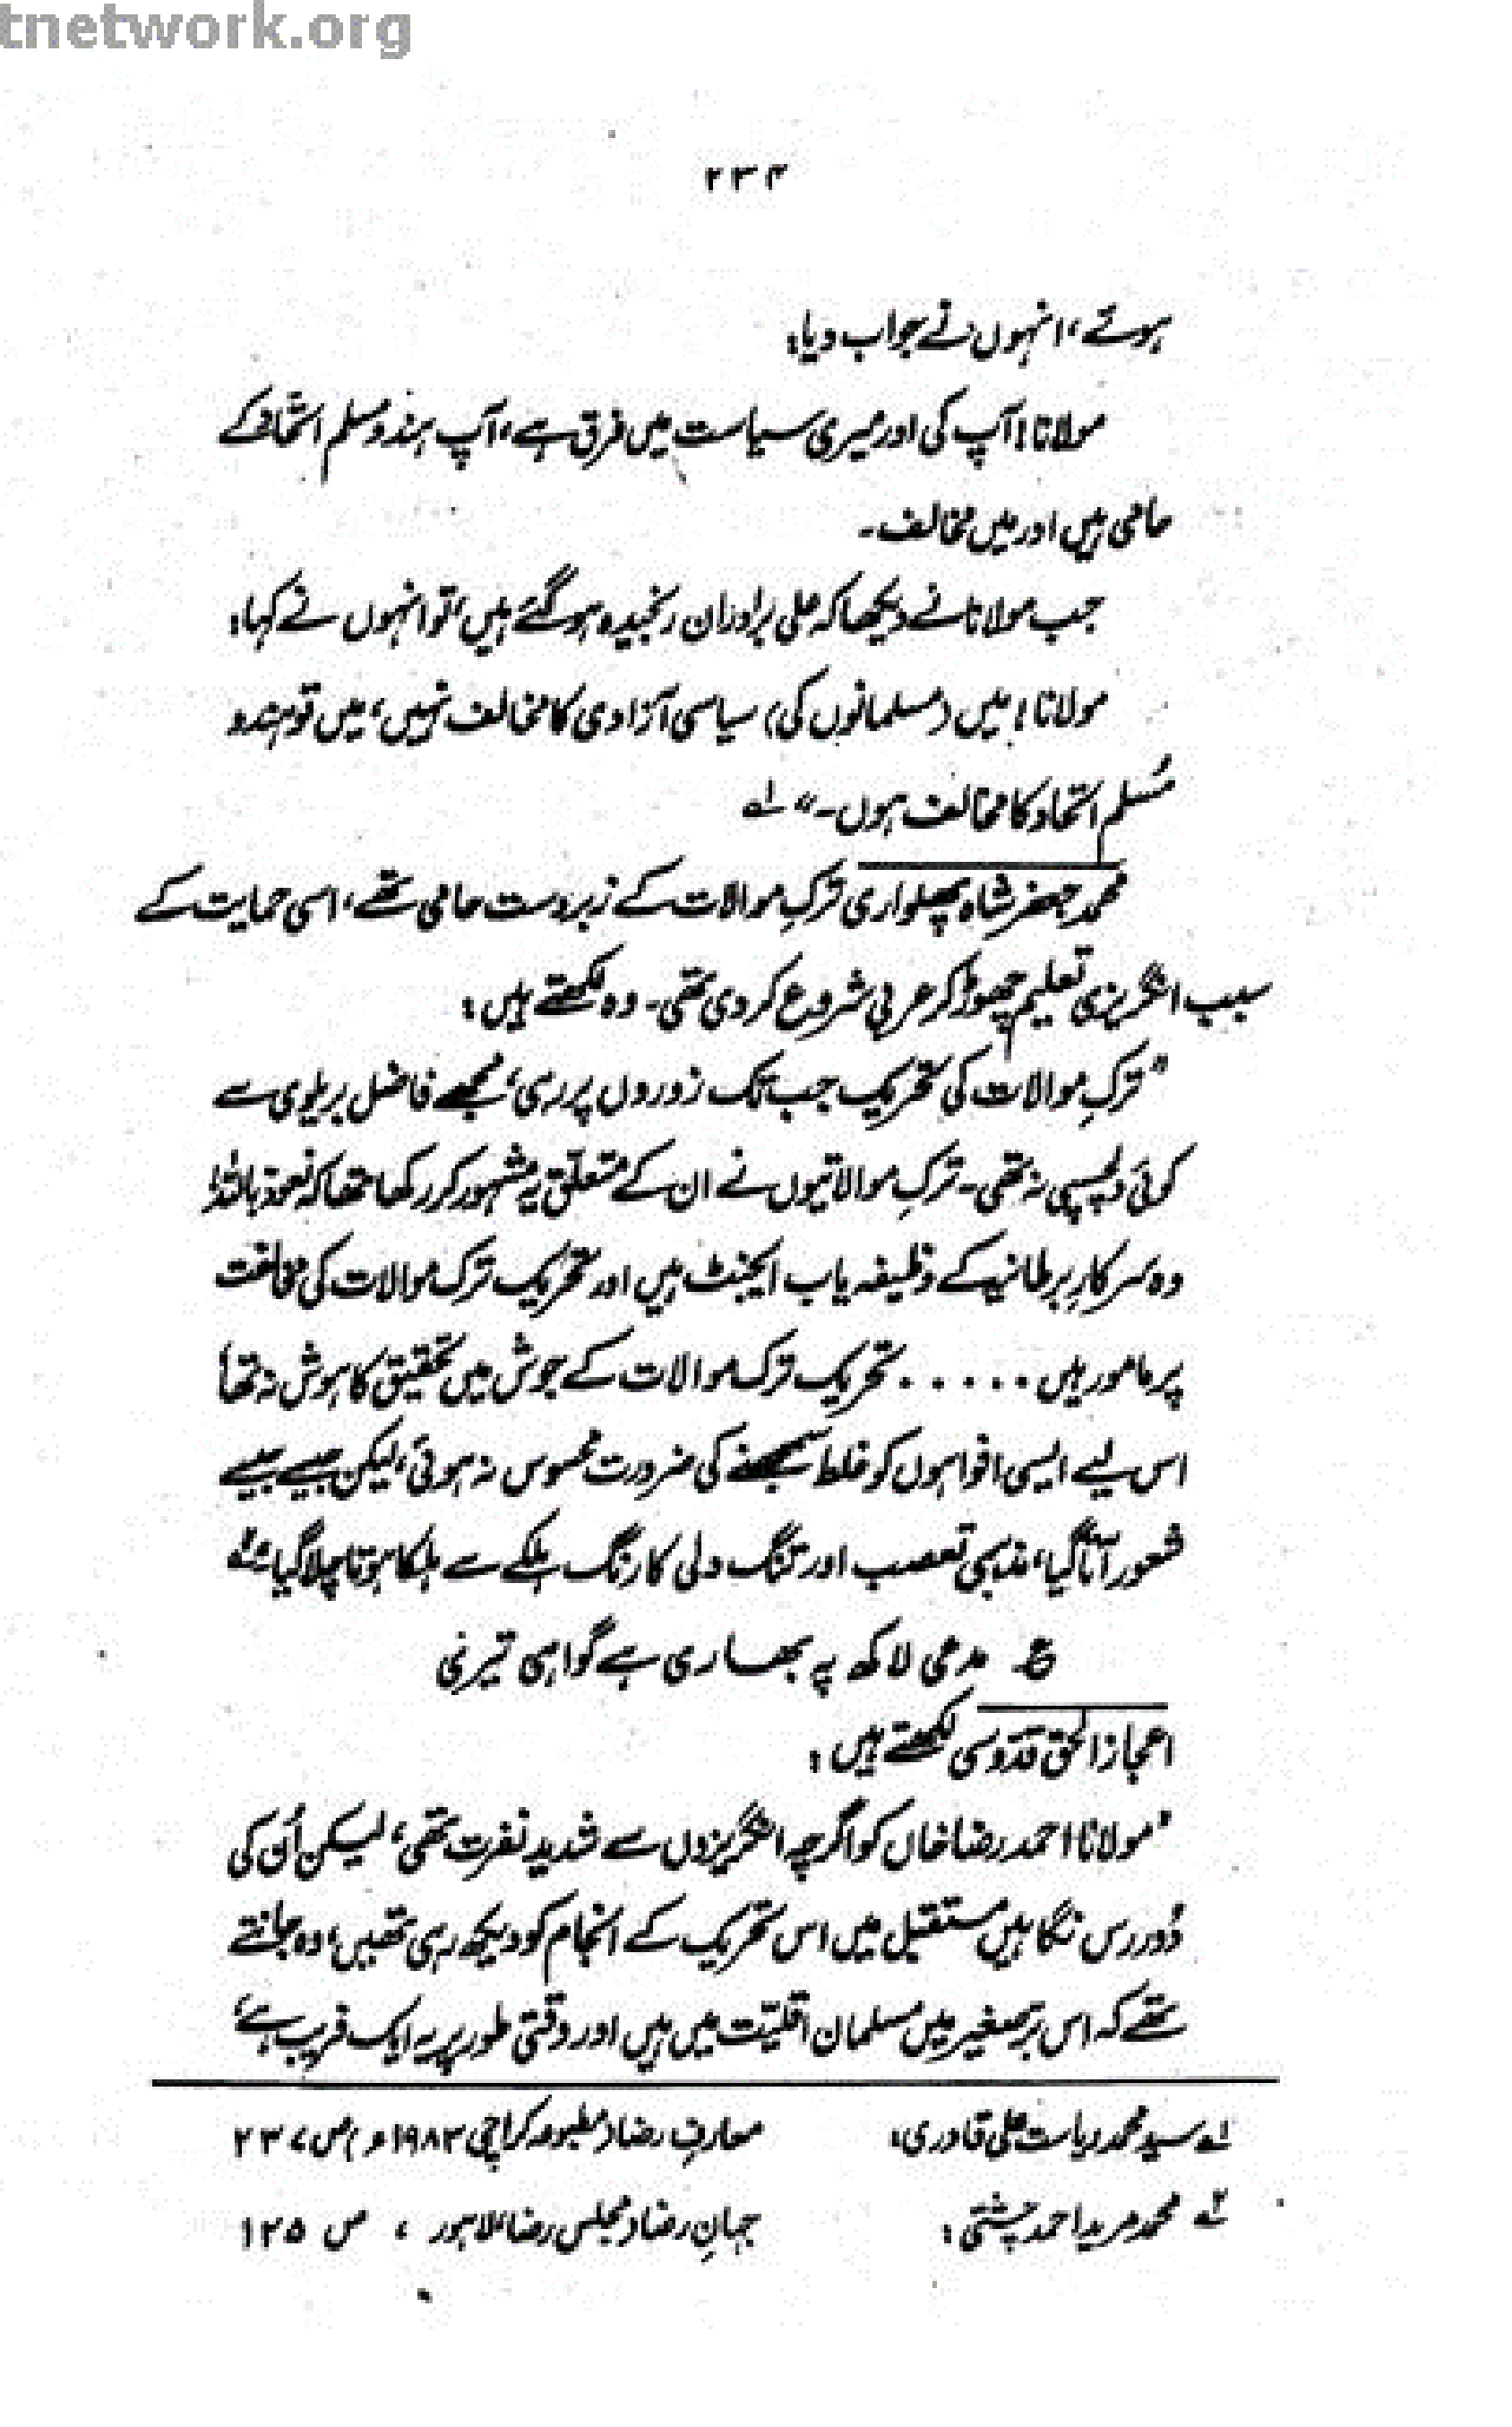 tnetwork.org
۲۳۴
ہوئے، انہوں نے جواب دیا:
مولانا! آپ کی اور میری سیاست میں فرق ہے، آپ ہندو مسلم اتحاد کے
حامی ہیں اور میں مخالف۔
جب مولانا نے دیکھا کہ علی برادران رنجیدہ ہو گئے ہیں، تو انہوں نے کہا:
مولانا! میں (مسلمانوں کی) سیاسی آزادی کا مخالف نہیں، میں تو ہندو
مُسلم اتحاد کا مخالف ہوں۔" لہ
محمد جعفر شاہ پھلواری ترکِ موالات کے زبردست حامی تھے، اسی حمایت کے
سبب انگریزی تعلیم چھوڑ کر عربی شروع کر دی تھی۔ وہ لکھتے ہیں:
"ترکِ موالات کی تحریک جب تک زوروں پر رہی، مجھے فاضل بریلوی سے
کوئی دلچسپی نہ تھی۔ ترکِ موالاتیوں نے ان کے متعلق یہ مشہور کر رکھا تھا کہ نعوذ باللہ!
وہ سرکارِ برطانیہ کے وظیفہ یاب ایجنٹ ہیں اور تحریک ترک موالات کی مخالفت
پر مامور ہیں ..... تحریک ترک موالات کے جوش میں تحقیق کا ہوش نہ تھا،
اس لیے ایسی افواہوں کو غلط سمجھنے کی ضرورت محسوس نہ ہوئی، لیکن جیسے جیسے
شعور آتا گیا، مذہبی تعصب اور تنگ دلی کا رنگ ہلکے سے ہلکا ہوتا چلا گیا" ۲ہ
ع مدعی لاکھ پہ بھاری ہے گواہی تیری
اعجاز الحق قدوسی لکھتے ہیں:
"مولانا احمد رضا خاں کو اگرچہ انگریزوں سے شدید نفرت تھی، لیکن اُن کی
دُور رس نگاہیں مستقبل میں اس تحریک کے انجام کو دیکھ رہی تھیں، وہ جانتے
تھے کہ اس برصغیر میں مسلمان اقلیّت میں ہیں اور وقتی طور پر یہ ایک فریب ہے،
لہ سید محمد ریاست علی قادری، معارفِ رضا (مطبوعہ کراچی ۱۹۸۳ء) ص ۲۳۷
۲ہ محمد مرید احمد چشتی: جہانِ رضا (مجلس رضا، لاہور ، ص ۱۲۵